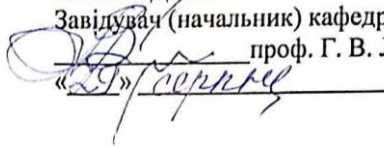 Завідувач (начальник) кафедр
проф. Г. В.
«29» серпня